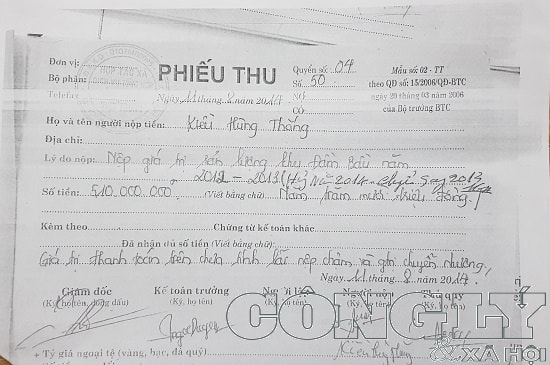 Đơn vị: PHIẾU THU Quyển số: 04 Mẫu số 02 - TT
Bộ phận: HỢP TÁC XÃ Số 50 theo QĐ số: 15/2006/QĐ-BTC
Telefax Ngày 11 tháng 2 năm 2014 NỢ ngày 20 tháng 03 năm 2006
CÓ của Bộ trưởng BTC
Họ và tên người nộp tiền: Kiều Hùng Thắng
Địa chỉ:
Lý do nộp: Nộp giá trị sản lượng khu Đầm Bầu năm
2012 - 2013 2014 2013
Số tiền: 510.000.000 (Viết bằng chữ) Năm trăm mười triệu đồng
Kèm theo Chứng từ kế toán khác.
Đã nhận đủ số tiền (Viết bằng chữ):
Giá trị thanh toán trên chưa tính lãi nộp chậm và gtn chuyển nhượng
Ngày 11 tháng 2 năm 2014
Giám đốc Kế toán trưởng Người Người nộ Thủ quỹ
(Ký, họ tên, đóng dấu) (Ký, họ tên) (Ký, họ tên) (Ký, họ tên)
CÔNG LÝ
& XÃ HỘI
+ Tỷ giá ngoại tệ (vàng, bạc, đá quý)